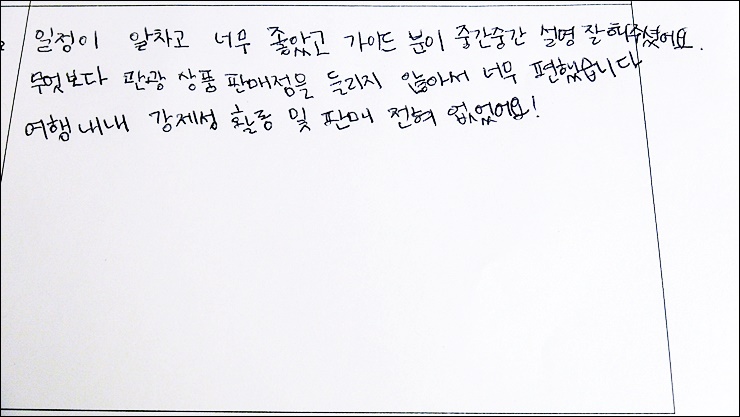 일정이 알차고 너무 좋았고 가이드 분이 중간중간 설명 잘해주셨어요.
무엇보다 관광 상품 판매점을 들리지 않아서 너무 편했습니다
여행 내내 강제성 활동 및 판매 전혀 없었어요!